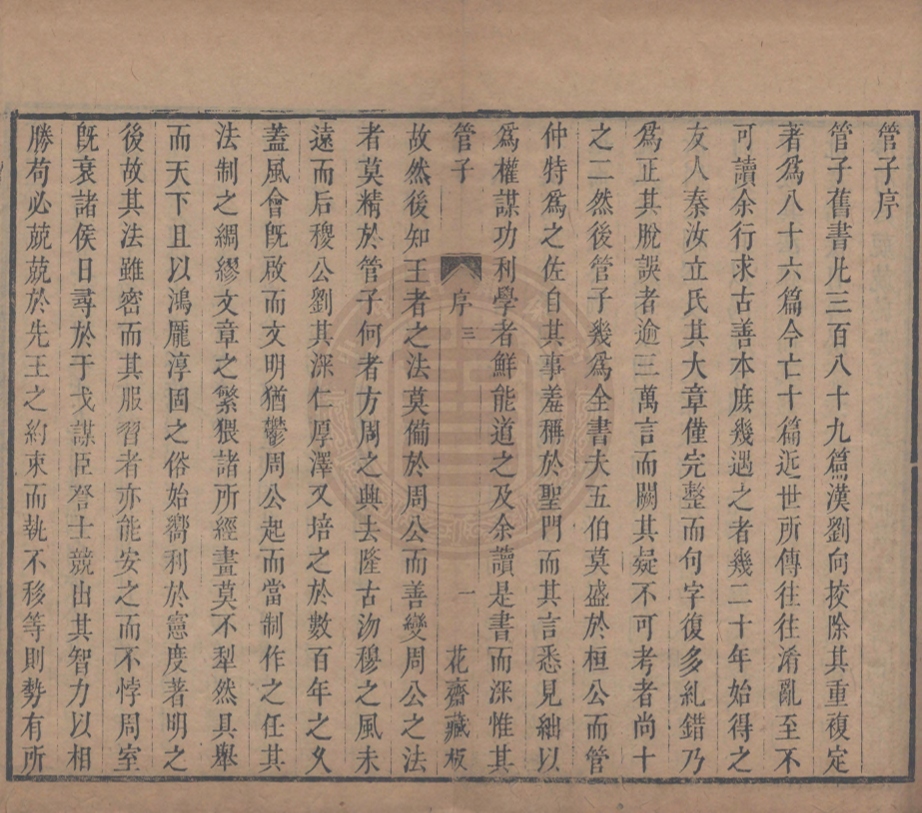 管子序
管子舊書凡三百八十九篇漢劉向挍除其重複定
著爲八十六篇今亡十篇近世所傳往往淆亂至不
可讀余行求古善本庶幾遇之者幾二十年始得之
友人秦汝立氏其大章僅完整而句字復多糺錯乃
爲正其脫誤者逾三萬言而闕其疑不可考者尚十
之二然後管子幾爲全書夫五伯莫盛於桓公而管
仲特爲之佐自其事羞稱於聖門而其言悉見絀以
爲權謀功利學者鮮能道之及余讀是書而深惟其
管子 序 三 一 花齋藏板
故然後知王者之法莫備於周公而善變周公之法
者莫精於管子何者方周之興去隆古沕穆之風未
遠而后稷公劉其深仁厚澤又培之於數百年之久
蓋風會旣啟而文明猶鬱周公起而當制作之任其
法制之綢繆文章之繁猥諸所經畫莫不犁然具舉
而天下且以鴻龐淳固之俗始嚮利於憲度著明之
後故其法雖密而其服習者亦能安之而不悖周室
旣衰諸侯日尋於干戈謀臣䇿士競出其智力以相
勝苟必兢兢於先王之約束而執不移等則勢有所